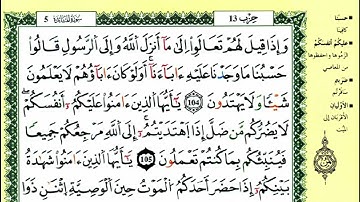 حزب 13
سورة المائدة 5
وَإِذَا قِيلَ لَهُمْ تَعَالَوْا۟ إِلَىٰ مَآ أَنزَلَ ٱللَّهُ وَإِلَى ٱلرَّسُولِ قَالُوا۟
حَسْبُنَا مَا وَجَدْنَا عَلَيْهِ ءَابَآءَنَآ أَوَلَوْ كَانَ ءَابَآؤُهُمْ لَا يَعْلَمُونَ
شَيْـًٔا وَلَا يَهْتَدُونَ 104 يَـٰٓأَيُّهَا ٱلَّذِينَ ءَامَنُوا۟ عَلَيْكُمْ أَنفُسَكُمْ
لَا يَضُرُّكُم مَّن ضَلَّ إِذَا ٱهْتَدَيْتُمْ إِلَى ٱللَّهِ مَرْجِعُكُمْ جَمِيعًا
فَيُنَبِّئُكُم بِمَا كُنتُمْ تَعْمَلُونَ 105 يَـٰٓأَيُّهَا ٱلَّذِينَ ءَامَنُوا۟ شَهَـٰدَةُ
بَيْنِكُمْ إِذَا حَضَرَ أَحَدَكُمُ ٱلْمَوْتُ حِينَ ٱلْوَصِيَّةِ ٱثْنَانِ ذَوَا
حسبنا
كافينا
عليكم أنفسكم
الزموها واحفظوها
من المعاصي
ضربتم
سافرتم
الأوليان
الأقربان إلى